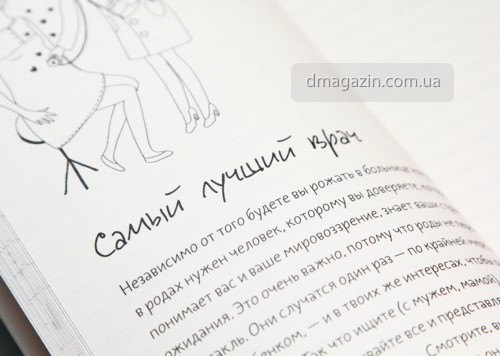 dmagazin.com.ua
Самый лучший врач
Независимо от того будете вы рожать в больнице
в родах нужен человек, которому вы доверяете,
понимает вас и ваше мировоззрение, знает ваши
ожидания. Это очень важно, потому что роды не
Они случатся один раз — по крайней мере
— и в твоих же интересах, чтобы
что ищите (с мужем, мамой)
все и представляй
Смотрите,